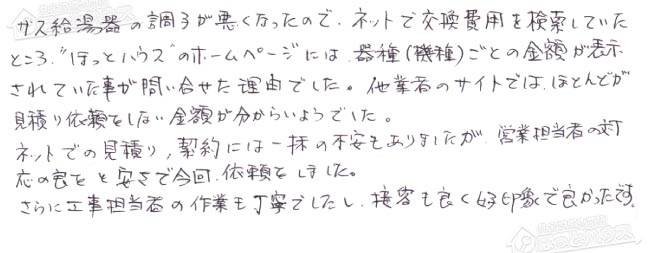 ガス給湯器の調子が悪くなったので、ネットで交換費用を検索していた
ところ、"ほっとハウス"のホームページには、器種(機種)ごとの金額が表示
されていた事が問い合せた理由でした。他業者のサイトでは、ほとんどが
見積り依頼をしない金額が分からいようでした。
ネットでの見積り、契約には一抹の不安もありましたが、営業担当者の対
応の良さと安さで今回、依頼をしました。
さらに工事担当者の作業も丁寧でしたし、接客も良く好印象で良かったです。